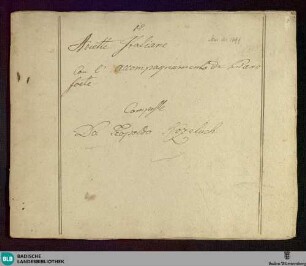 Ariette Italiane
Con l'accompagnamento da Piano
forte
Composte
Da Leopoldo Kozeluch
BLB
BADISCHE
LANDESBIBLIOTHEK
Baden-Württemberg